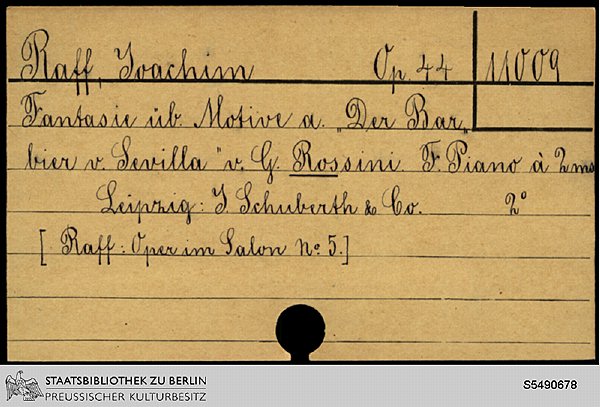 Raff, Joachim Op 44 11009
Fantasie üb. Motive a. „Der Bar„
bier v. Sevilla" v. G. Rossini. F. Piano à 2 ms
Leipzig: J. Schuberth & Co. 2°
[Raff: Oper im Salon No. 5.]
STAATSBIBLIOTHEK ZU BERLIN
PREUSSISCHER KULTURBESITZ
S5490678